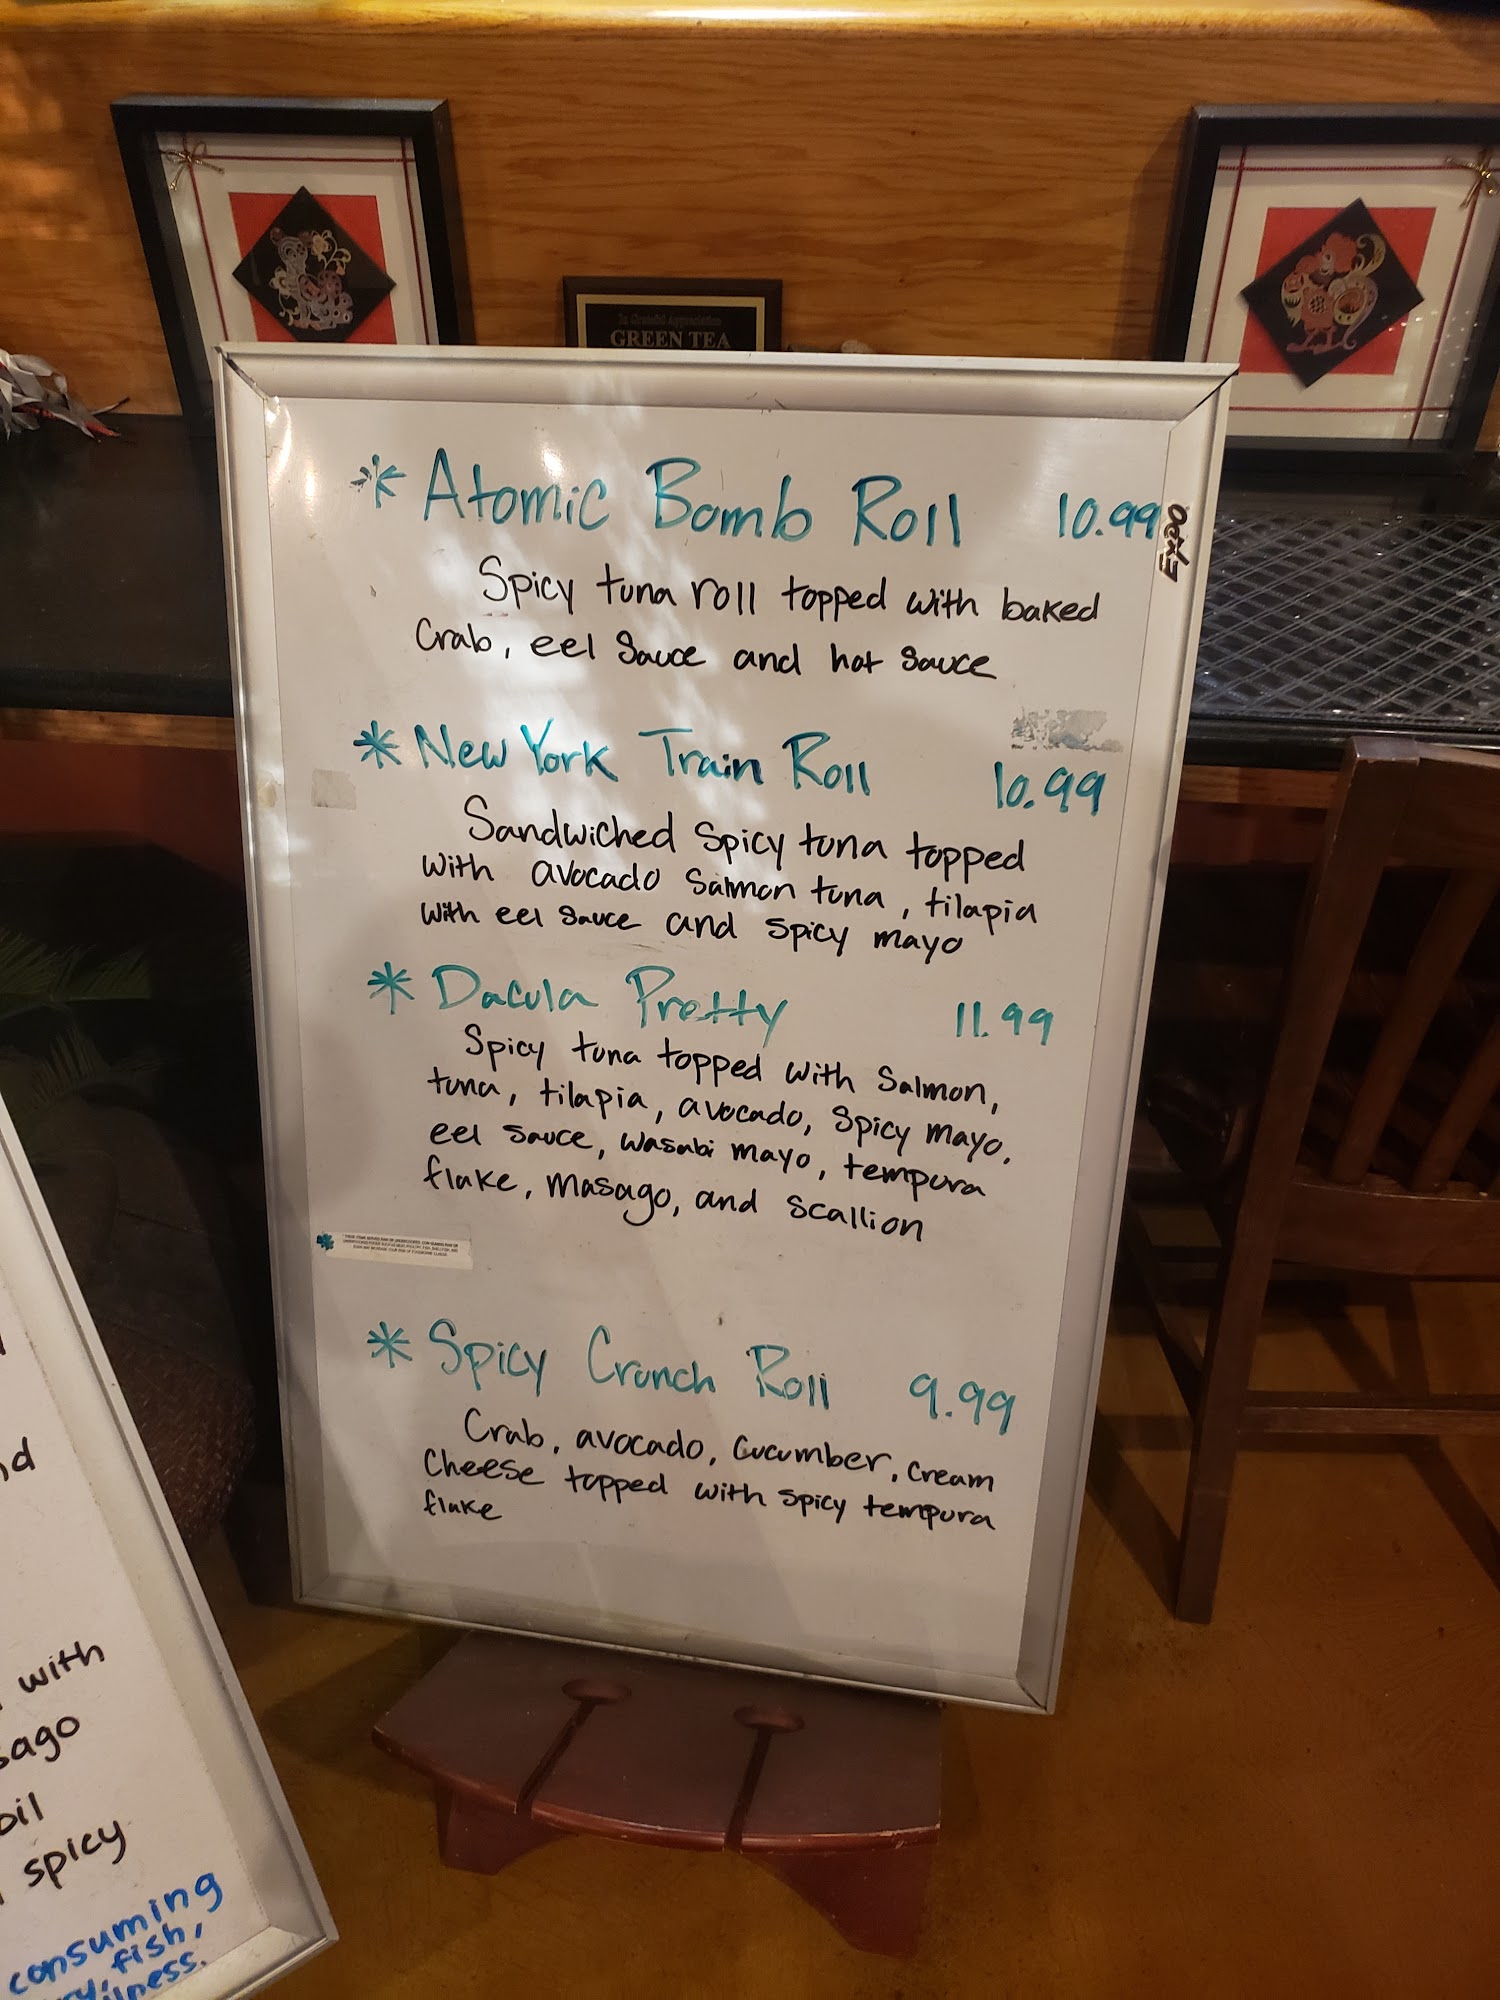 In Grateful Appreciation
GREEN TEA
* Atomic Bomb Roll 10.99
Spicy tuna roll topped with baked
Crab, eel Sauce and hot sauce
* New York Train Roll 10.99
Sandwiched Spicy tuna topped
with avocado salmon tuna, tilapia
with eel sauce and spicy mayo
* Dacula Pretty 11.99
Spicy tuna topped with Salmon,
tuna, tilapia, avocado, Spicy mayo,
eel sauce, wasabi mayo, tempura
flake, masago, and scallion
* Spicy Crunch Roll 9.99
Crab, avocado, Cucumber, cream
Cheese topped with spicy tempura
flake
Expo
with
oil
spicy
consuming
fish,